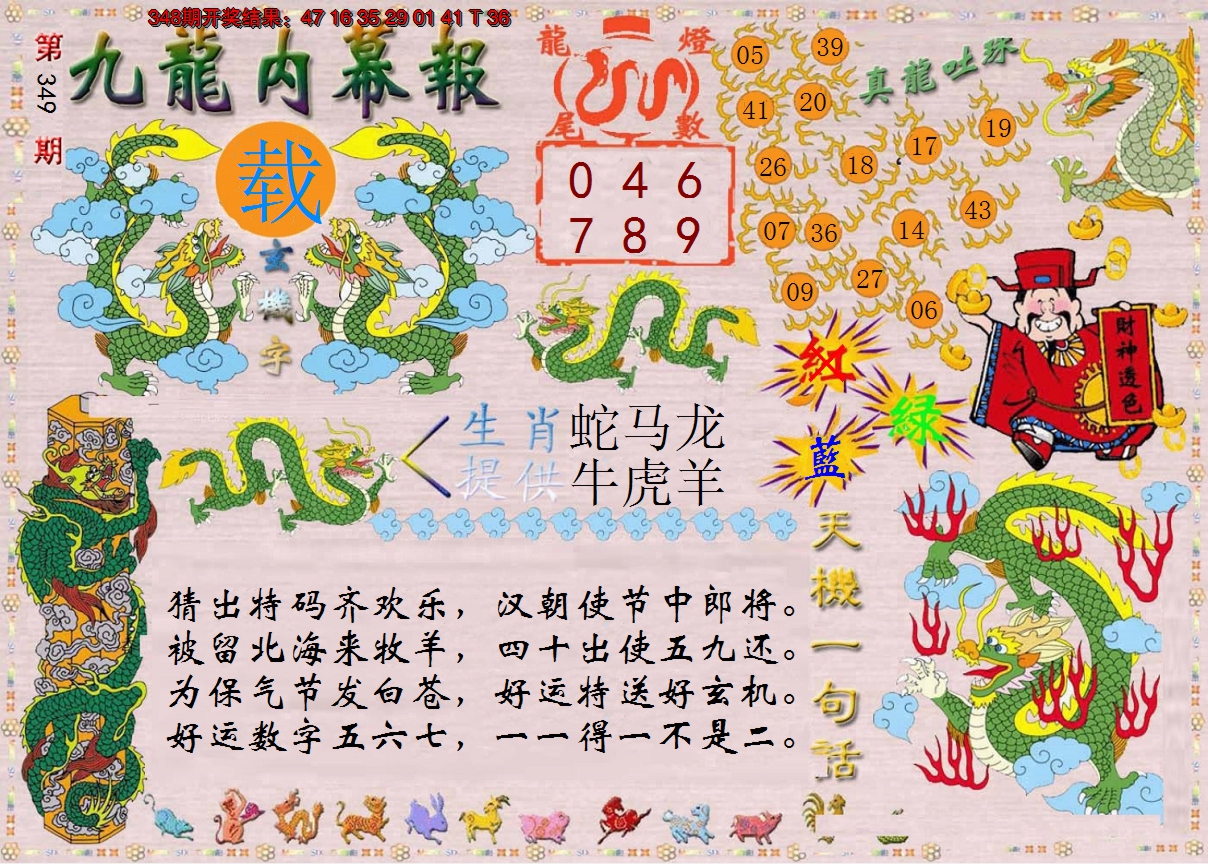 348期开奖结果：47 16 35 29 01 41 T 36
第349期
九龍内幕報
载
玄機字
龍燈尾數
0 4 6
7 8 9
真龍吐珠
05 39
41 20
26 18 17 19
07 36 14 43
09 27 06
紅
綠
藍
財神透色
生肖 蛇马龙
提供 牛虎羊
天機一句話
猜出特码齐欢乐，汉朝使节中郎将。
被留北海来牧羊，四十出使五九还。
为保气节发白苍，好运特送好玄机。
好运数字五六七，一一得一不是二。